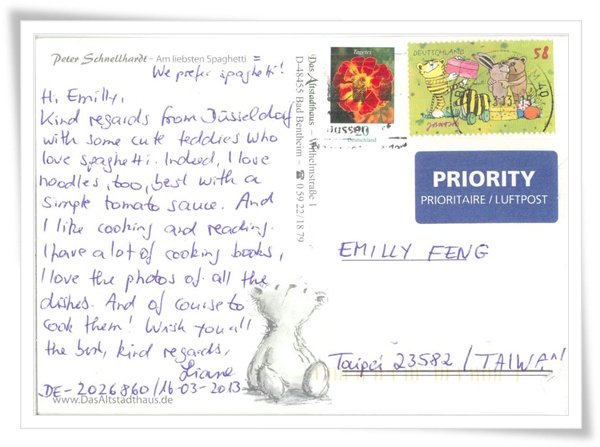 Peter Schnellhardt - Am liebsten Spaghetti =
We prefer spaghetti!
Hi Emilly,
Kind regards from Düsseldorf
with some cute teddies who
love spaghetti. Indeed, I love
noodles, too, best with a
simple tomato sauce. And
I like cooking and reading.
I have a lot of cooking books,
I love the photos of all the
dishes. And of course to
cook them! Wish you all
the best, kind regards,
Liane
DE-2026860/16-03-2013
www.DasAltstadthaus.de
Das Altstadthaus – Wilhelmstraße 1
D-48455 Bad Bentheim – ☎ 0 59 22/18 79
Tagetes
Deutschland
DEUTSCHLAND
58
Janosch
PRIORITY
PRIORITAIRE / LUFTPOST
EMILLY FENG
Taipei 23582 / TAIWAN